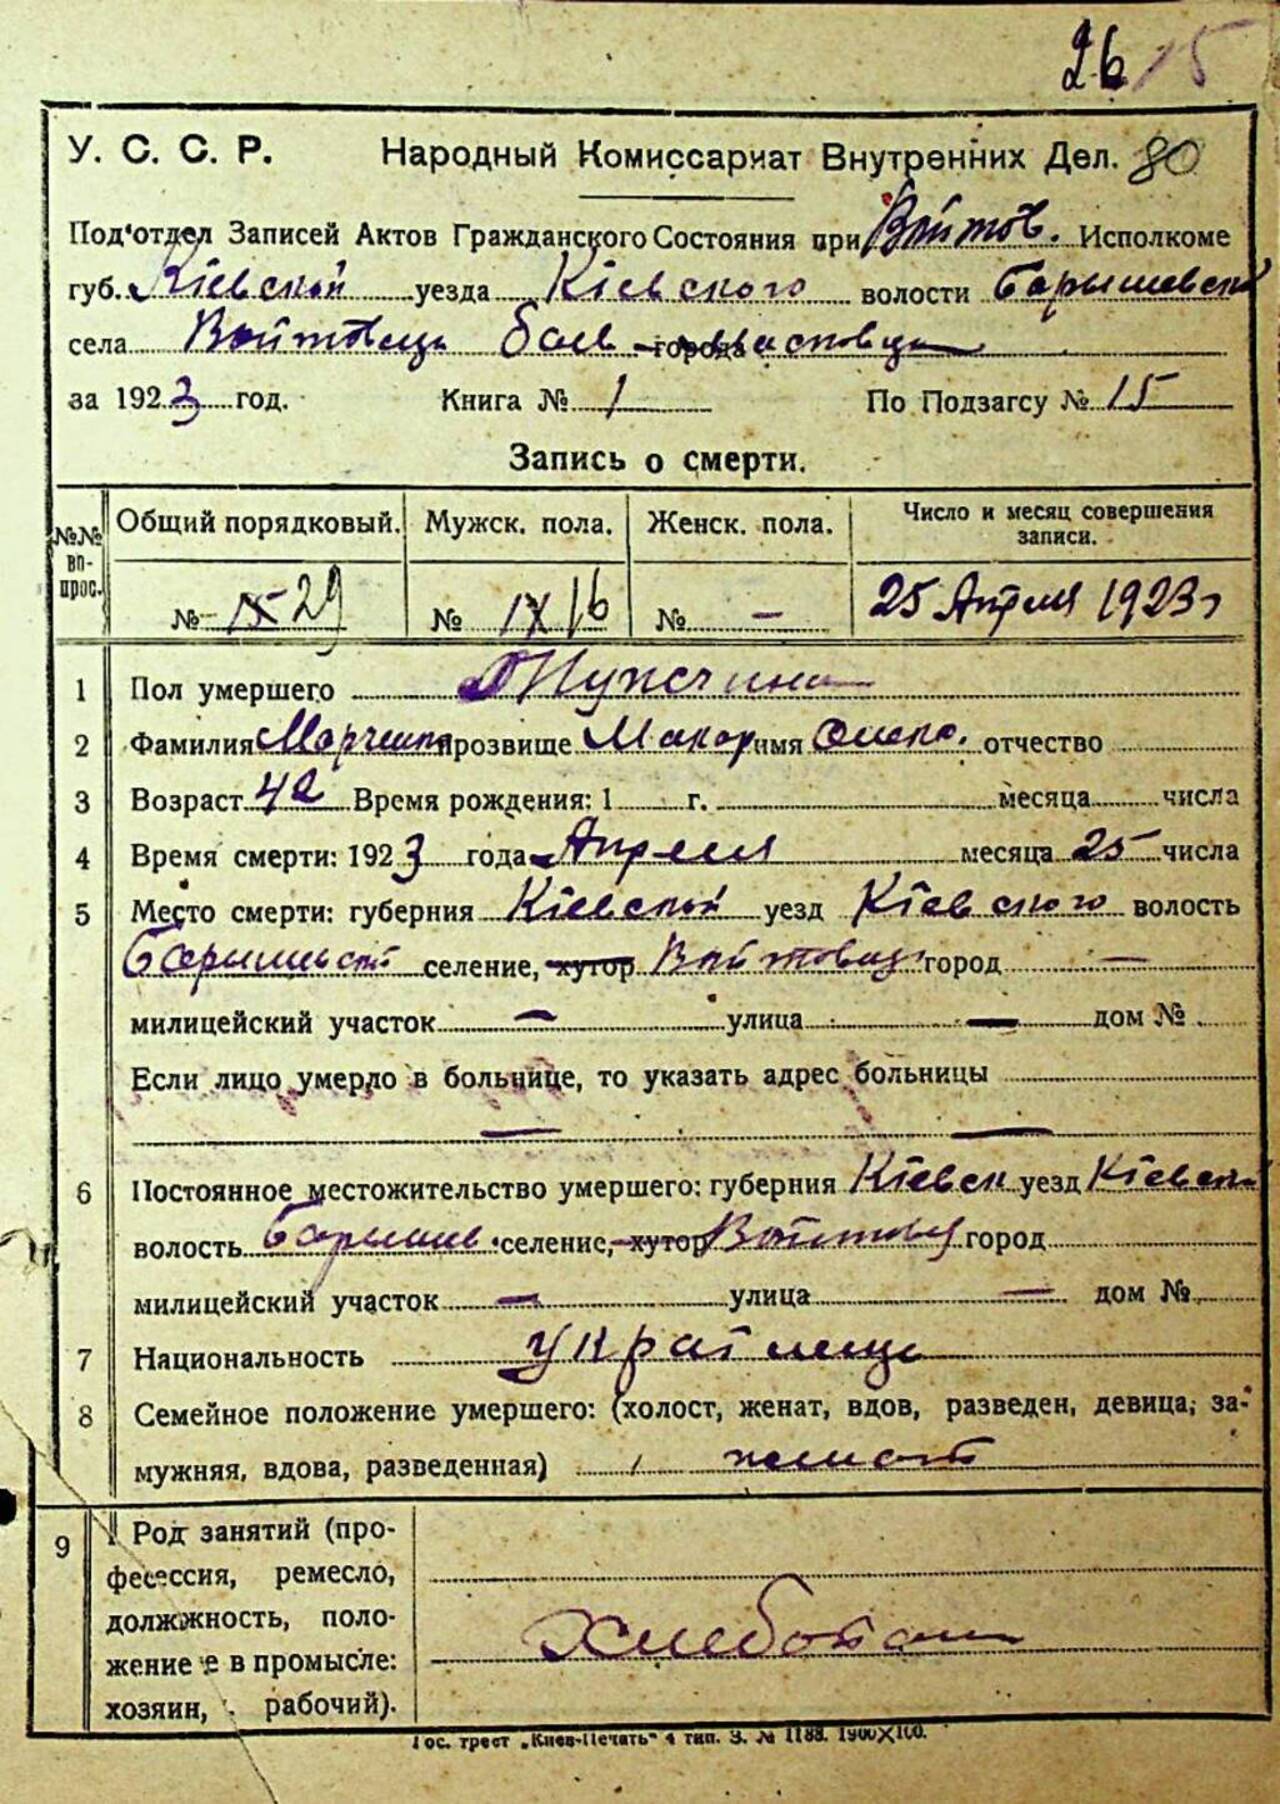 26 15
У. С. С. Р. Народный Комиссариат Внутренних Дел. 80
Под'отдел Записей Актов Гражданского Состояния при Войтов. Исполкоме
губ. Кіевской уезда Кіевского волости Барышевской
села Войтовцы города
за 1923 год. Книга № 1 По Подзагсу № 15
Запись о смерти.
№№ вопрос. Общий порядковый. Мужск. пола. Женск. пола. Число и месяц совершения записи.
№ 15 29 № 1X 16 № — 25 Апреля 1923 г
1 Пол умершего Мужчина
2 Фамилия Марченко прозвище Макар имя отчество
3 Возраст 42 Время рождения: 1 г. месяца числа
4 Время смерти: 1923 года Апреля месяца 25 числа
5 Место смерти: губерния Кіевской уезд Кіевского волость
Барышевской селение, хутор Войтовцы город —
милицейский участок — улица — дом №
Если лицо умерло в больнице, то указать адрес больницы
— —
6 Постоянное местожительство умершего: губерния Кіевск уезд Кіевск
волость Барышев селение, хутор Войтовцы город
милицейский участок — улица — дом №
7 Национальность Украйнец
8 Семейное положение умершего: (холост, женат, вдов, разведен, девица, за-
мужняя, вдова, разведенная) женат
9 Род занятий (про-
фесессия, ремесло,
должжность, поло-
жение е в промысле:
хозяин, рабочий).
Хлебопаш
Гос. трест „Киев-Печать" 4 тип. З. № 1188. 1900X100.